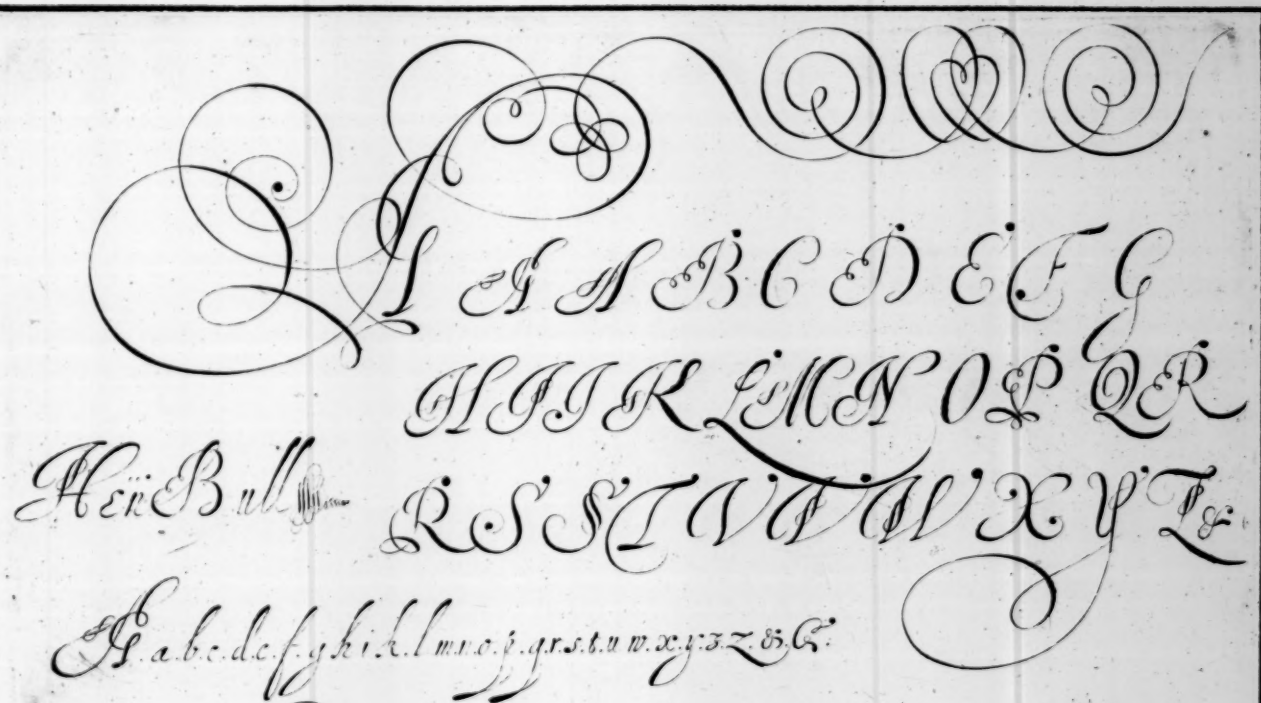 A A B C D E F G
H I I K L M N O P Q R
Hen Bull
R S S T V V W X Y Z &
A a.b.c.d.e.f.g.h.i.k.l.m.n.o.p.q.r.s.t.u.w.x.y.z.z.&.